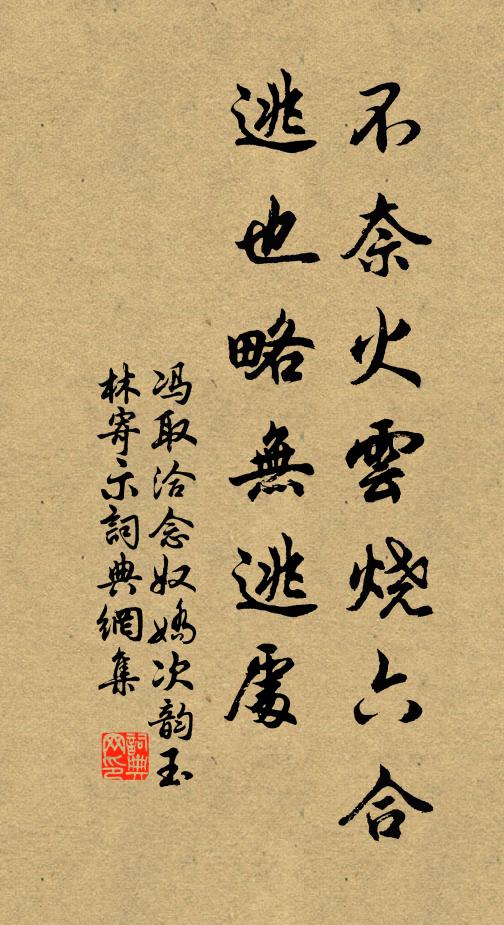 不奈火雲燒六合
逃也略無逃處
冯取洽念奴嬌次韵玉
林寄示詞典網集
詞典
网印